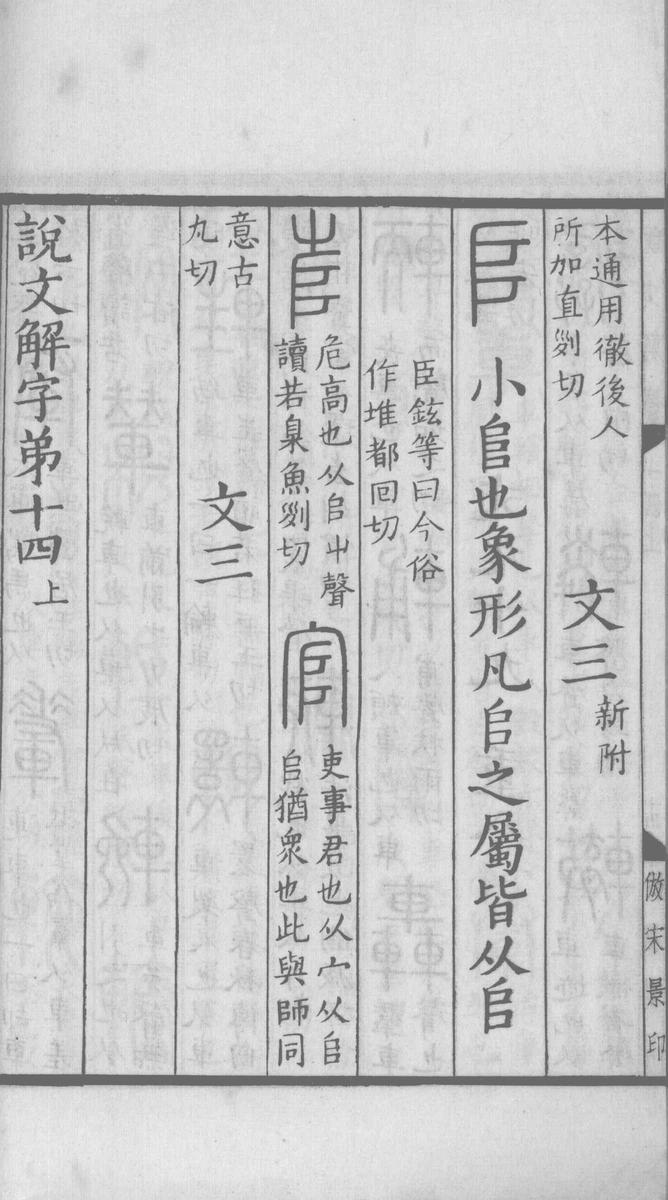 本通用徹後人
所加直𠛱切
文三
新附
𠂤
小𠂤也象形凡𠂤之屬皆从𠂤
臣鉉等曰今俗
作堆都回切
𠂤
危高也从𠂤屮聲
讀若臬魚𠛱切
官
吏事君也从宀从𠂤
𠂤猶衆也此與師同
意古
丸切
文三
說文解字弟十四上
倣宋景印